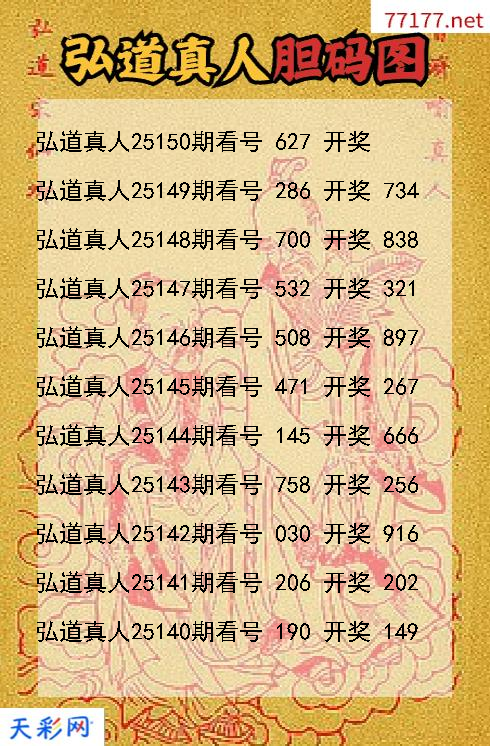 77177.net
弘道真人胆码图
弘道真人25150期看号 627 开奖
弘道真人25149期看号 286 开奖 734
弘道真人25148期看号 700 开奖 838
弘道真人25147期看号 532 开奖 321
弘道真人25146期看号 508 开奖 897
弘道真人25145期看号 471 开奖 267
弘道真人25144期看号 145 开奖 666
弘道真人25143期看号 758 开奖 256
弘道真人25142期看号 030 开奖 916
弘道真人25141期看号 206 开奖 202
弘道真人25140期看号 190 开奖 149
天彩网